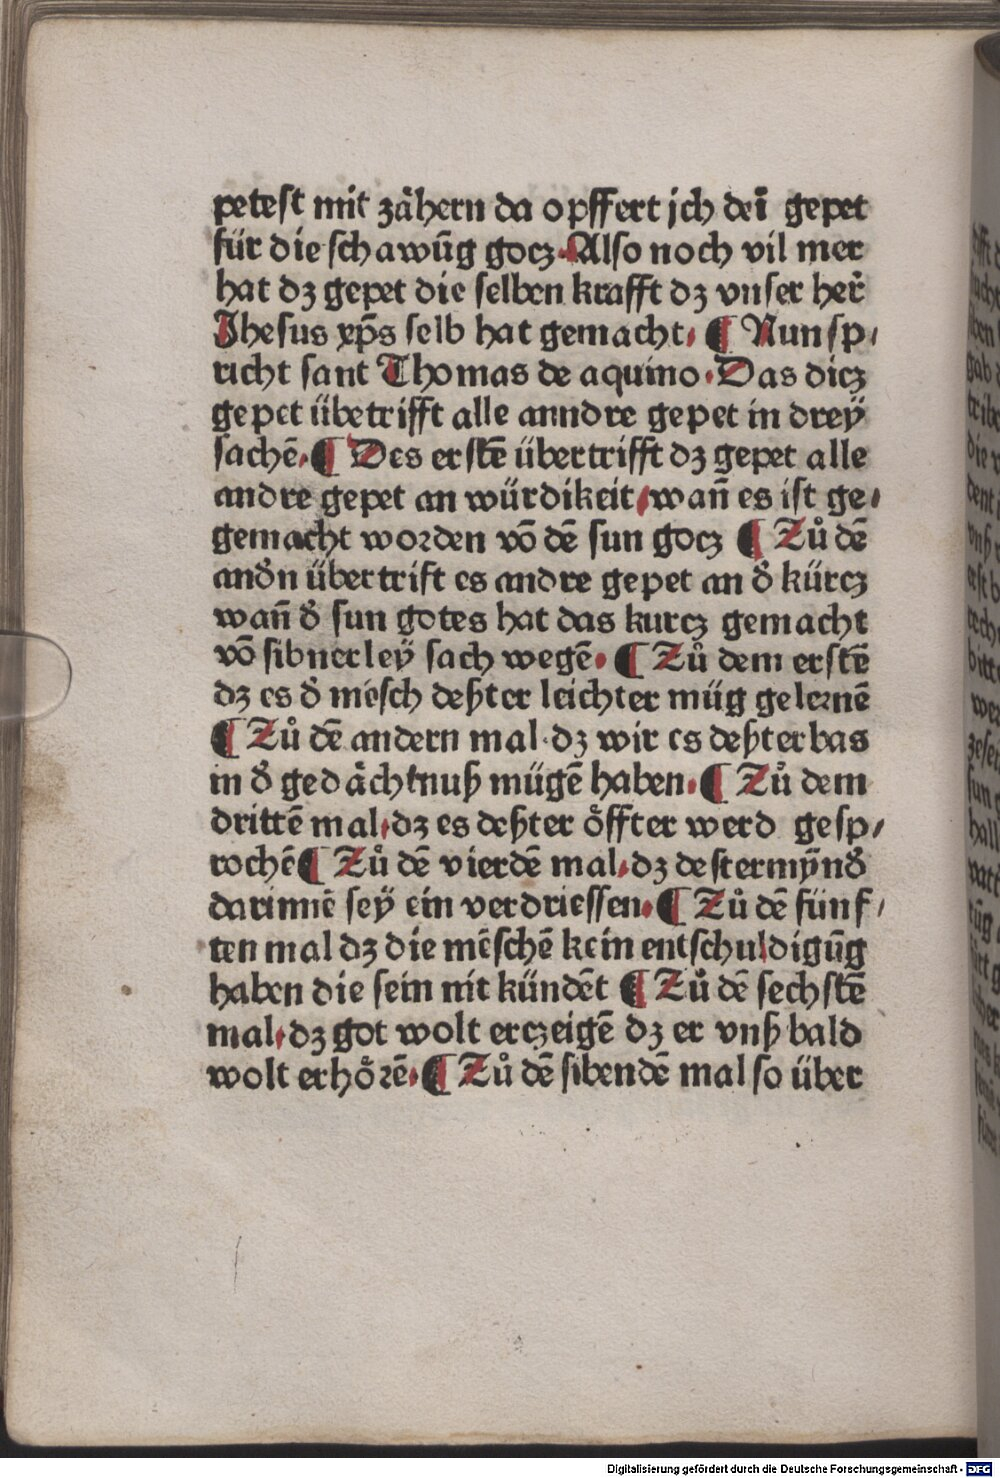 petest mit zähern da opffert jch dei̅ gepet
für die schawūg gocz. Also noch vil mer
hat dz gepet die selben krafft dz vnser her̃
Jhesus xp̄s selb hat gemacht. ¶ Nun sp⸗
richt sant Thomas de aquino. Das dicz
gepet übetrifft alle anndre gepet in dreÿ
sachē. ¶ Des erstē übertrifft dz gepet alle
andre gepet an würdikeit, wañ es ist ge⸗
gemacht worden vō dē sun gocz ¶ Zů dē
andn̄ übertrift es andre gepet an d̄ kürcz
wañ d̄ sun gotes hat das kurcz gemacht
vō sibnerleÿ sach wegē. ¶ Zů dem erstē
dz es d̄ mēsch deßter leichter müg gelernē
¶ Zů dē andern mal. dz wir es deßter bas
in d̄ gedächtnuß mügē haben. ¶ Zů dem
drittē mal, dz es deßter öffter werd gesp⸗
rochē ¶ Zů dē vierdē mal, dz dester mÿnd̄
darinnē seÿ ein verdriessen. ¶ Zů dē fünf⸗
ten mal dz die mēschē kein entschuldigūg
haben die sein nit kündēt ¶ Zů dē sechstē
mal, dz got wolt erczeigē dz er vnß bald
wolt erhörē. ¶ Zů dē sibendē mal so über
Digitalisierung gefördert durch die Deutsche Forschungsgemeinschaft - DFG